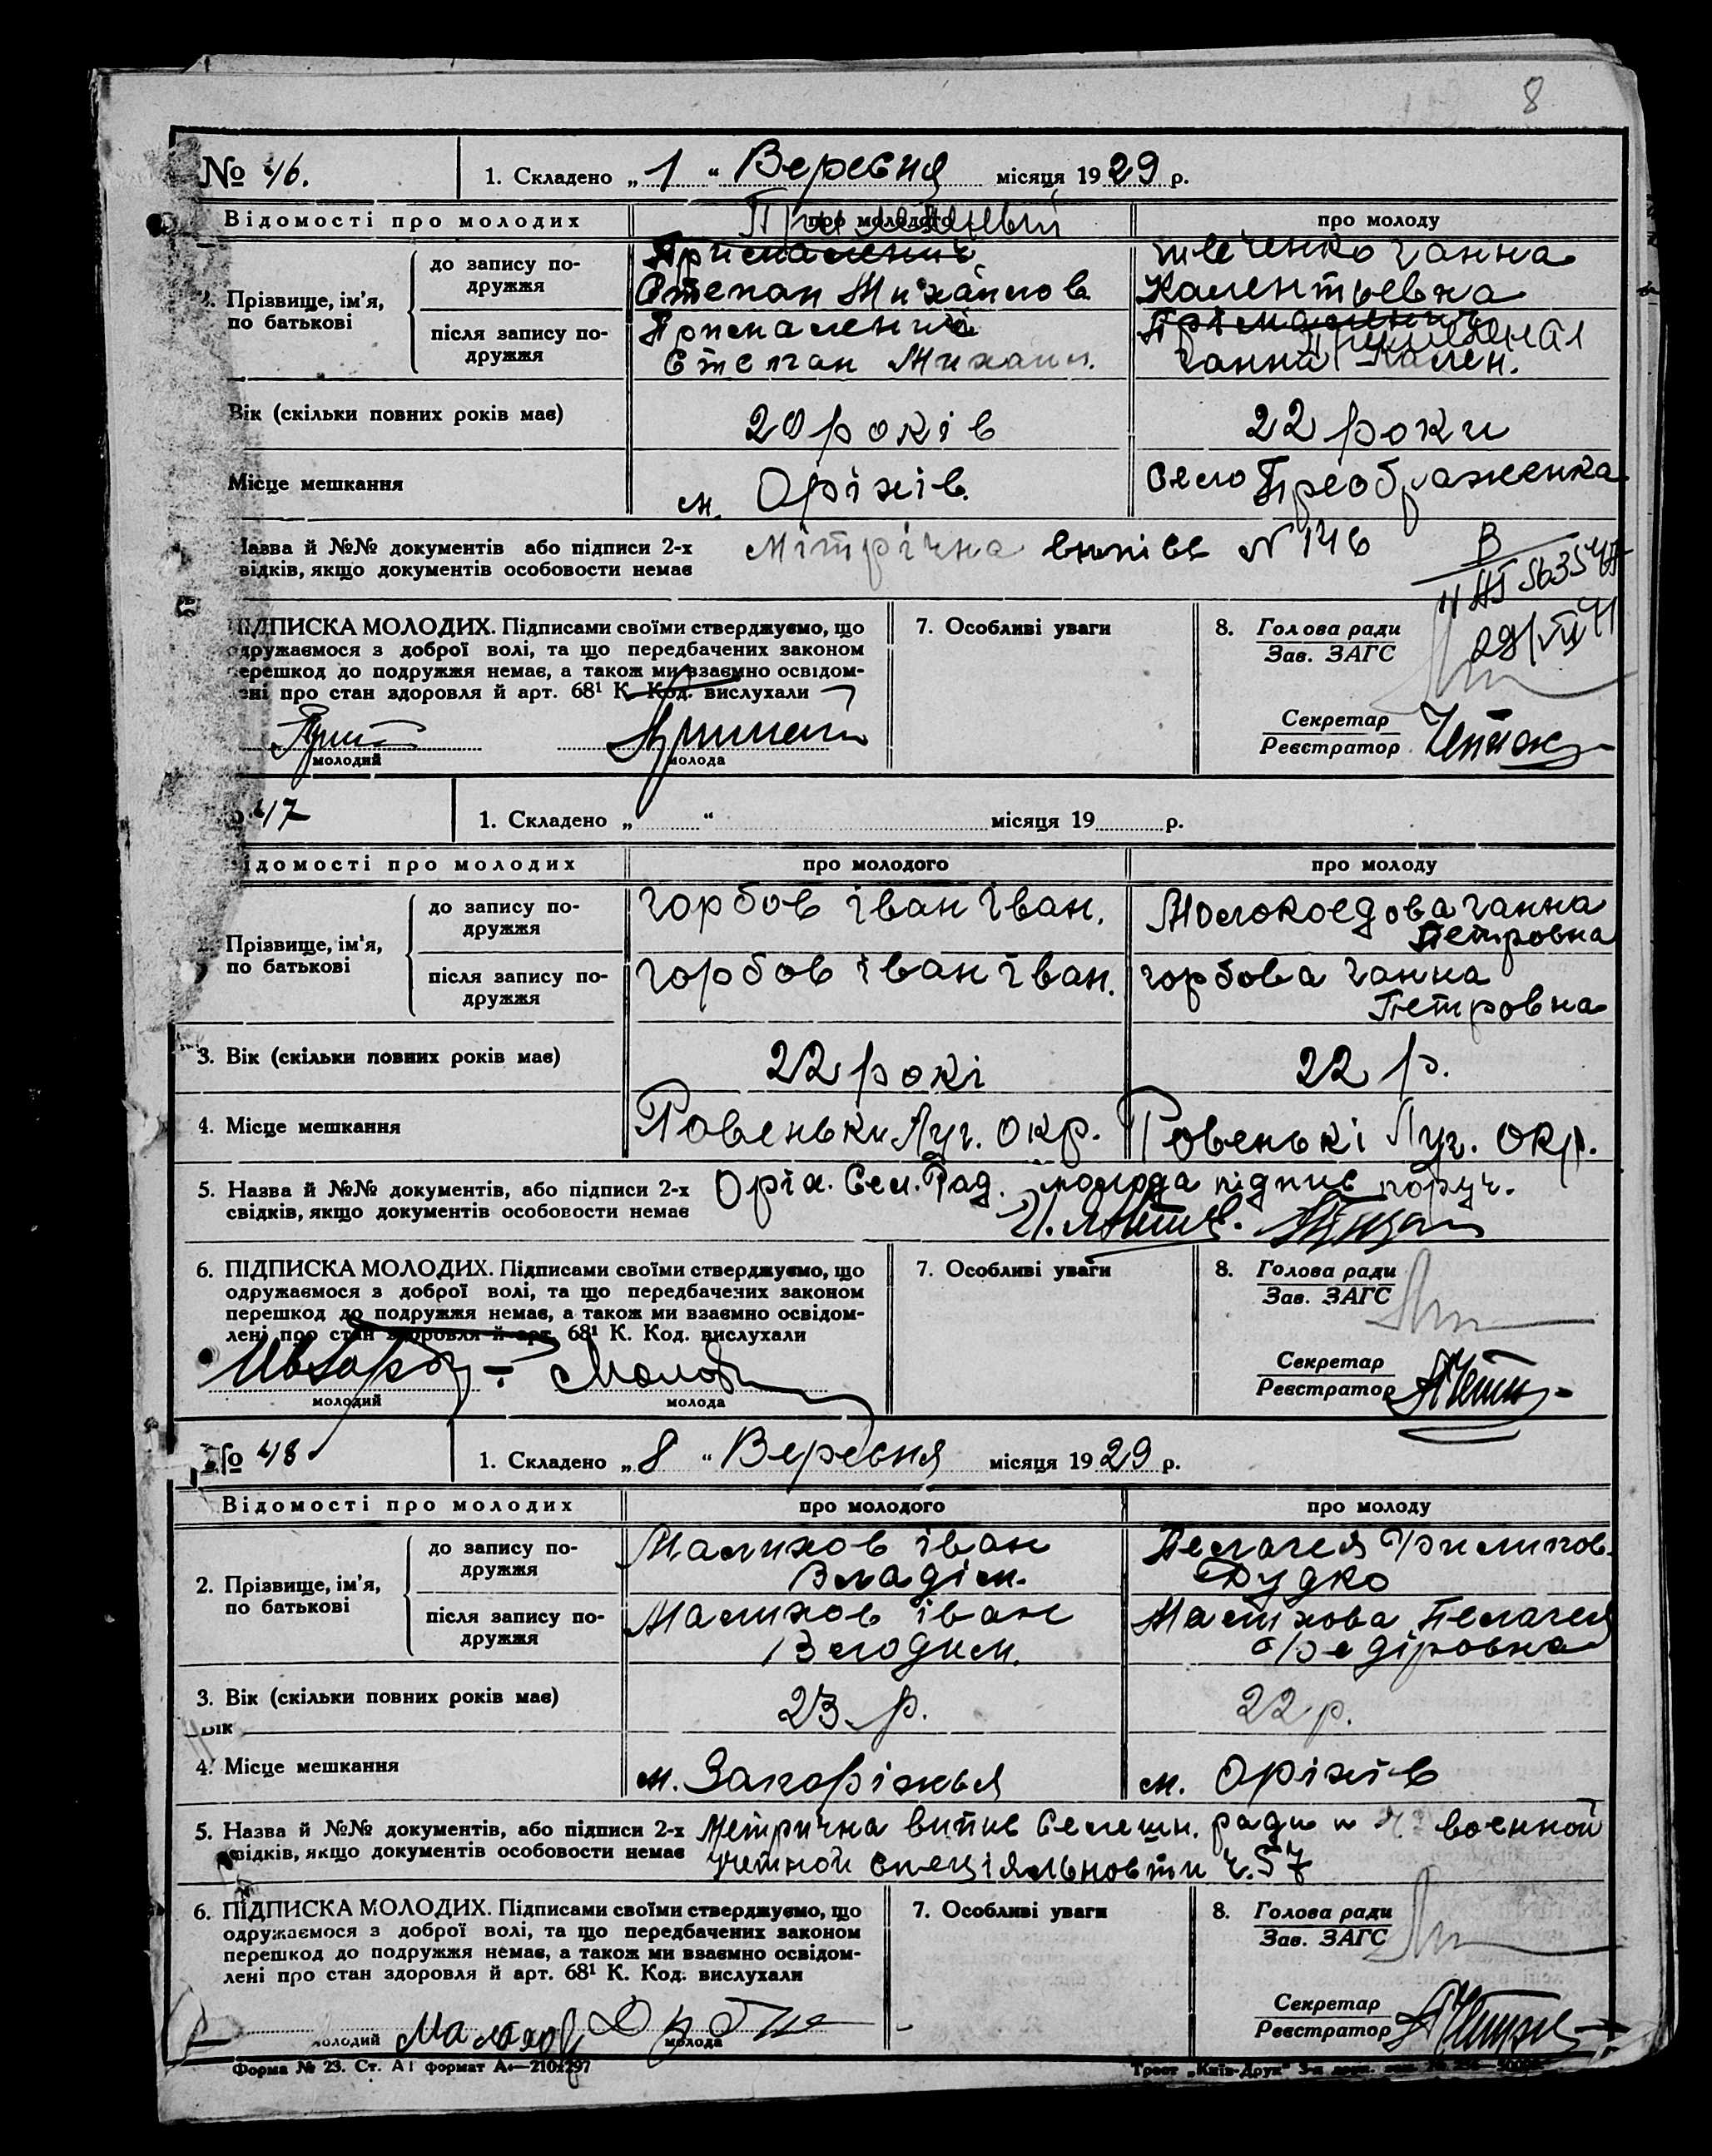 8
№ 46.
1. Складено „ 1 “ Вересня місяця 1929 р.
Відомості про молодих про молодого про молоду
до запису по-
дружжя
Степан Михайлов. Ганна
Калентьевна
Прізвище, ім'я,
по батькові
після запису по-
дружжя
Степан Михайл. Ганна Кален.
Вік (скільки повних років має) 20 років 22 роки
Місце мешкання м. Оріхів. село Преображенка
Назва й №№ документів або підписи 2-х
відків, якщо документів особовости немає
Мітрічна випісь N 146
В
29/VII 41
ПІДПИСКА МОЛОДИХ. Підписами своїми стверджуємо, що
одружаємося з доброї волі, та що передбачених законом
перешкод до подружжя немає, а також ми взаємно освідом-
лені про стан здоровля й арт. 68¹ К. Код. вислухали
молодий молода
7. Особливі уваги
8. Голова ради
Зав. ЗАГС
Секретар
Реєстратор
47
1. Складено „ “ місяця 19 р.
Відомості про молодих про молодого про молоду
до запису по-
дружжя
Горбов Іван Іван. Молокоедова Ганна
Петровна
2. Прізвище, ім'я,
по батькові
після запису по-
дружжя
Горбов Іван Іван. Горбова Ганна
Петровна
3. Вік (скільки повних років має) 22 рокі 22 р.
4. Місце мешкання Ровеньки Луг. окр. Ровенькі Луг. окр.
5. Назва й №№ документів, або підписи 2-х
свідків, якщо документів особовости немає
Оріх. Сел. Рад. молода підпис поруч.
6. ПІДПИСКА МОЛОДИХ. Підписами своїми стверджуємо, що
одружаємося з доброї волі, та що передбачених законом
перешкод до подружжя немає, а також ми взаємно освідом-
лені про стан здоровля й арт. 68¹ К. Код. вислухали
молодий молода
7. Особливі уваги
8. Голова ради
Зав. ЗАГС
Секретар
Реєстратор
№ 48
1. Складено „ 8 “ Вересня місяця 1929 р.
Відомості про молодих про молодого про молоду
до запису по-
дружжя
Малихов Іван
Владім.
Пелагея Филипов.
Дудко
2. Прізвище, ім'я,
по батькові
після запису по-
дружжя
Малихов Іван
Володим.
Малихова Пелагея
Федіровна
3. Вік (скільки повних років має) 23 р. 22 р.
Вік
4. Місце мешкання м. Запоріжья м. Оріхів
5. Назва й №№ документів, або підписи 2-х
свідків, якщо документів особовости немає
Метрична випис Селещн. ради воєнной
учетной спеціяльновти ч. 57
6. ПІДПИСКА МОЛОДИХ. Підписами своїми стверджуємо, що
одружаємося з доброї волі, та що передбачених законом
перешкод до подружжя немає, а також ми взаємно освідом-
лені про стан здоровля й арт. 68¹ К. Код. вислухали
молодий Малихов молода
7. Особливі уваги
8. Голова ради
Зав. ЗАГС
Секретар
Реєстратор
Форма № 23. Ст. А1 формат А4—210x297
Трест „Київ-Друк“